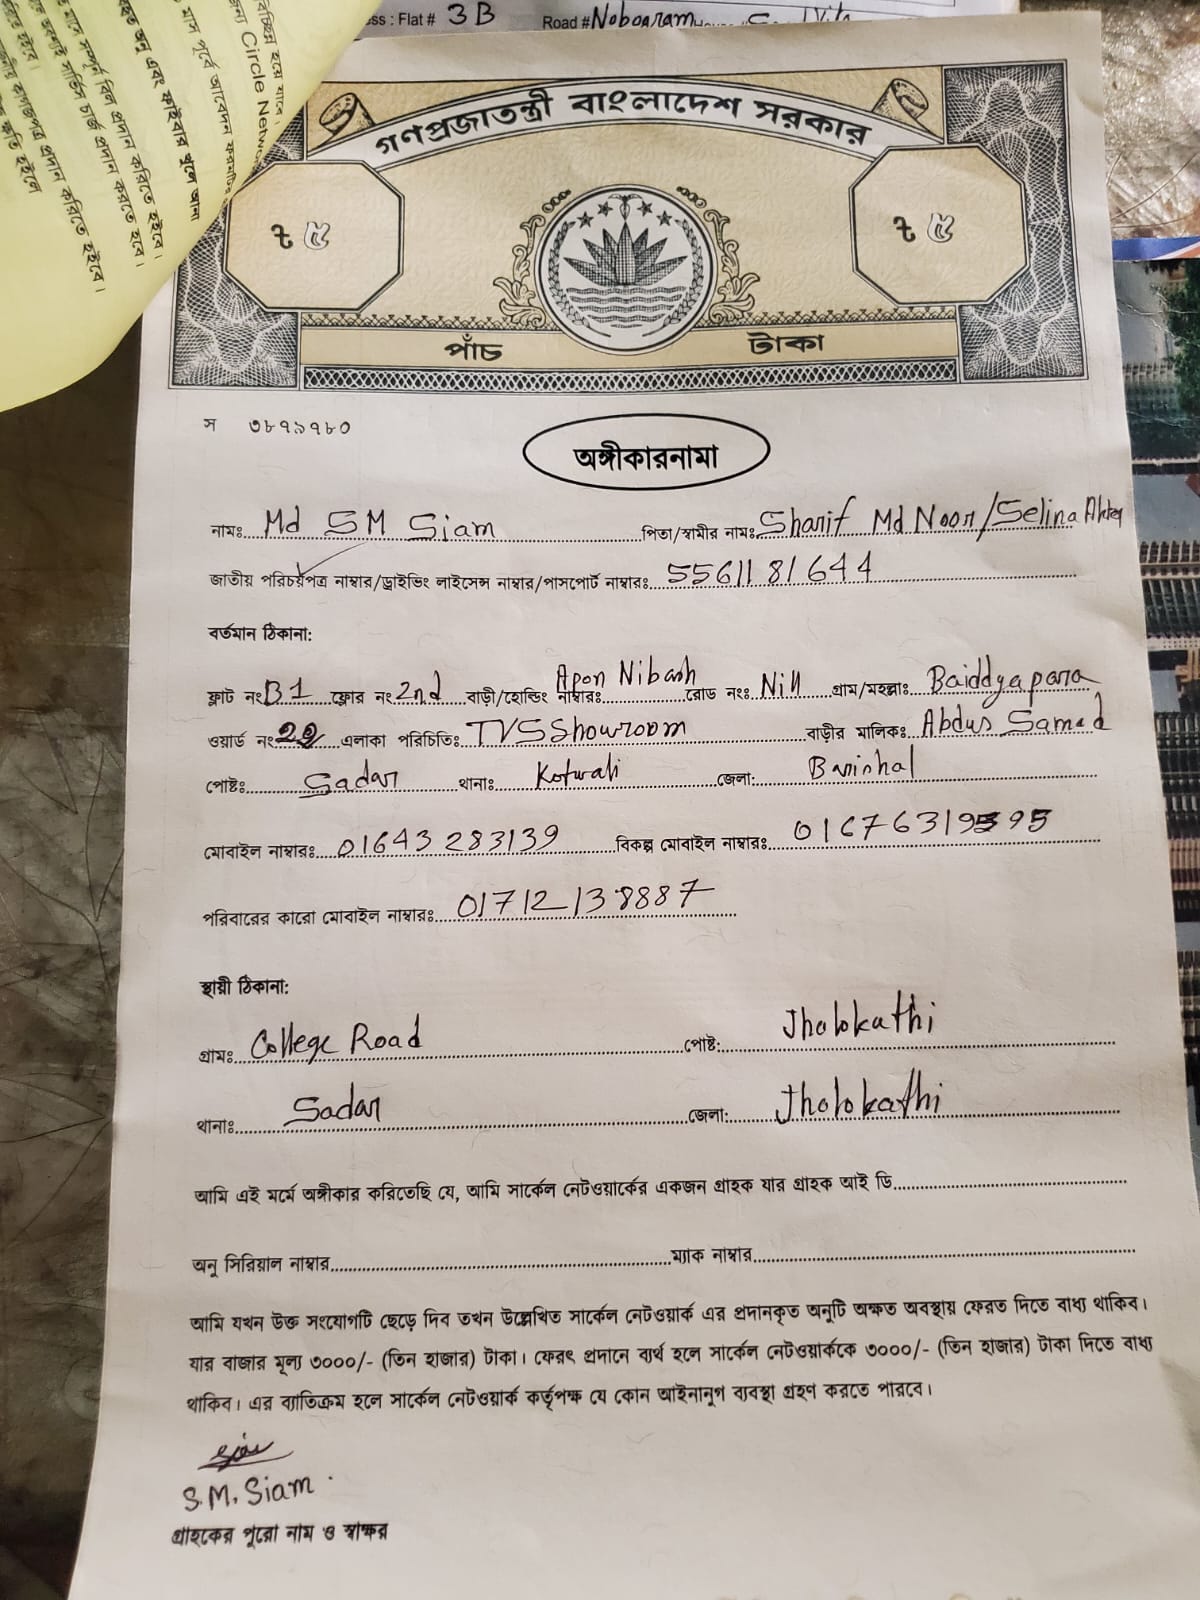 ss : Flat # 3B Road # Nobogram
গণপ্রজাতন্ত্রী বাংলাদেশ সরকার
৳ ৫ ৳ ৫
পাঁচ টাকা
স ৩৮৭৯৭৮০
অঙ্গীকারনামা
নামঃ Md SM Siam পিতা/স্বামীর নামঃ Sharif Md Noor/Selina Akter
জাতীয় পরিচয়পত্র নাম্বার/ড্রাইভিং লাইসেন্স নাম্বার/পাসপোর্ট নাম্বারঃ 5561181644
বর্তমান ঠিকানা:
ফ্লাট নং B1 ফ্লোর নং 2nd বাড়ী/হোল্ডিং নাম্বারঃ Apon Nibash রোড নংঃ Nill গ্রাম/মহল্লাঃ Baiddyapara
ওয়ার্ড নং এলাকা পরিচিতিঃ TVS Showroom বাড়ীর মালিকঃ Abdus Samad
পোষ্টঃ Sadar থানাঃ Kotwali জেলা: Barishal
মোবাইল নাম্বারঃ 01643283139 বিকল্প মোবাইল নাম্বারঃ
পরিবারের কারো মোবাইল নাম্বারঃ 01712138887
স্থায়ী ঠিকানা:
গ্রামঃ College Road পোষ্ট: Jholokathi
থানাঃ Sadar জেলা: Jholokathi
আমি এই মর্মে অঙ্গীকার করিতেছি যে, আমি সার্কেল নেটওয়ার্কের একজন গ্রাহক যার গ্রাহক আই ডি
অনু সিরিয়াল নাম্বার ম্যাক নাম্বার
আমি যখন উক্ত সংযোগটি ছেড়ে দিব তখন উল্লেখিত সার্কেল নেটওয়ার্ক এর প্রদানকৃত অনুটি অক্ষত অবস্থায় ফেরত দিতে বাধ্য থাকিব।
যার বাজার মূল্য ৩০০০/- (তিন হাজার) টাকা। ফেরৎ প্রদানে ব্যর্থ হলে সার্কেল নেটওয়ার্ককে ৩০০০/- (তিন হাজার) টাকা দিতে বাধ্য
থাকিব। এর ব্যতিক্রম হলে সার্কেল নেটওয়ার্ক কর্তৃপক্ষ যে কোন আইনানুগ ব্যবস্থা গ্রহণ করতে পারবে।
S.M. Siam
গ্রাহকের পুরো নাম ও স্বাক্ষর